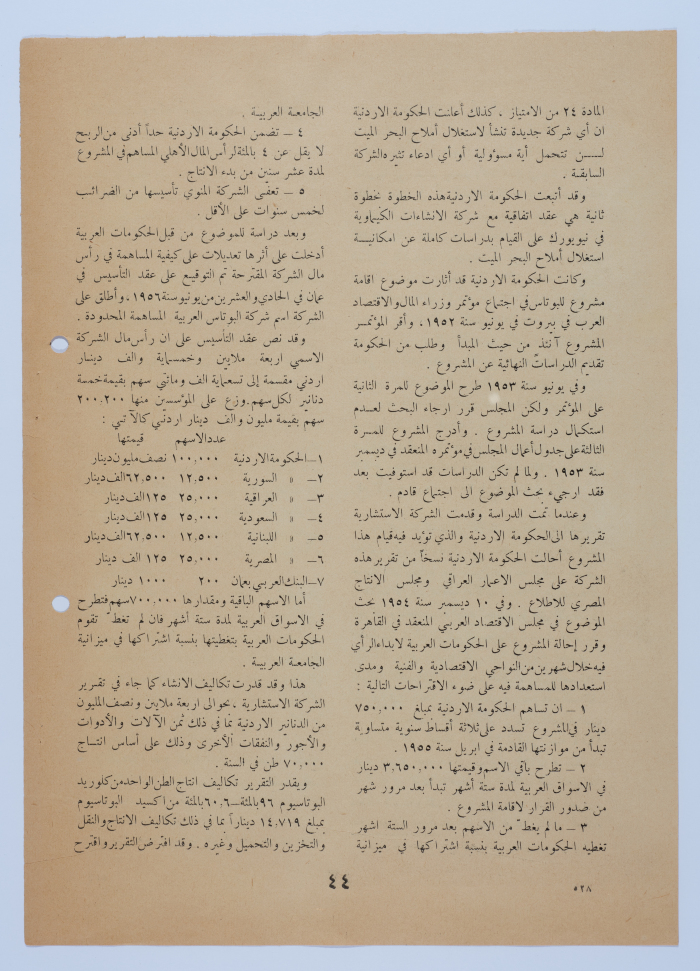 المادة ٢٤ من الامتياز ، كذلك أعلنت الحكومة الاردنية
ان أي شركة جديدة تنشأ لاستغلال أملاح البحر الميت
لـــن تتحمل أية مسؤولية أو أي ادعاء تثيره الشركة
السابقة .
وقد أتبعت الحكومة الاردنية هذه الخطوة خطوة
ثانية هي عقد اتفاقية مع شركة الانشاءات الكيماوية
في نيويورك على القيام بدراسات كاملة عن امكانيـة
استغلال أملاح البحر الميت .
وكانت الحكومة الاردنية قد أثارت موضوع اقامة
مشروع للبوتاس في اجتماع مؤتمر وزراء المال والاقتصاد
العرب في بيروت في يونيو سنة ١٩٥٢ ، وأقر المؤتمـر
المشروع آنئذ من حيث المبدأ وطلب من الحكومة
تقديم الدراسات النهائية عن المشروع .
وفي يونيو سنة ١٩٥٣ طرح الموضوع للمرة الثانية
على المؤتمر ولكن المجلس قرر ارجاء البحث لعـدم
استكمال دراسة المشروع . وأدرج المشروع للمـرة
الثالثة على جدول أعمال المجلس في مؤتمره المنعقد في ديسمبر
سنة ١٩٥٣ . ولما لم تكن الدراسات قد استوفيت بعد
فقد ارجيء بحث الموضوع الى اجتماع قادم .
وعندما تمت الدراسة وقدمت الشركة الاستشارية
تقريرها الى الحكومة الاردنية والذي تؤيد فيه قيام هذا
المشروع أحالت الحكومة الاردنية نسخاً من تقرير هذه
الشركة على مجلس الاعمار العراقي ومجلس الانتاج
المصري للاطلاع . وفي ١٠ ديسمبر سنة ١٩٥٤ بحث
الموضوع في مجلس الاقتصاد العربي المنعقد في القاهرة
وقرر إحالة المشروع على الحكومات العربية لابداء الرأي
فيه خلال شهرين من النواحي الاقتصادية والفنية ومدى
استعدادها للمساهمة فيه على ضوء الاقتراحات التالية :
١ – ان تساهم الحكومة الاردنية بمبلغ ٧٥٠,٠٠٠
دينار في المشروع تسدد على ثلاثة أقساط سنوية متساوية
تبدأ من موازنتها القادمة في ابريل سنة ١٩٥٥ .
٢ – تطرح باقي الاسهم وقيمتها ٣,٦٥٠,٠٠٠ دينار
في الاسواق العربية لمدة ستة أشهر تبدأ بعد مرور شهر
من صدور القرار لاقامة المشروع .
٣ – ما لم يغطّ من الاسهم بعد مرور الستة اشهر
تغطيه الحكومات العربية بنسبة اشتراكها في ميزانية
الجامعة العربية .
٤ – تضمن الحكومة الاردنية حداً أدنى من الربـح
لا يقل عن ٤ بالمئة لرأس المال الأهلي المساهم في المشروع
لمدة عشر سنين من بدء الانتاج .
٥ – تعفى الشركة المنوي تأسيسها من الضرائب
لخمس سنوات على الأقل .
وبعد دراسة للموضوع من قبل الحكومات العربية
أدخلت على أثرها تعديلات على كيفية المساهمة في رأس
مال الشركة المقترحة تم التوقيع على عقد التأسيس في
عمان في الحادي والعشرين من يونيو سنة ١٩٥٦ ، وأطلق على
الشركة اسم شركة البوتاس العربية المساهمة المحدودة .
وقد نص عقد التأسيس على ان رأس مال الشركة
الاسمي اربعة ملايين وخمسماية والف دينـار
اردني مقسمة إلى تسعماية الف ومائتي سهم بقيمة خمسة
دنانير لكل سهم . وزع على المؤسسين منها ٢٠٠,٢٠٠
سهم بقيمة مليون والف دينار اردني كالآتي :
عدد الاسهم قيمتها
١– الحكومة الاردنية ١٠٠,٠٠٠ نصف مليون دينار
٢– » السورية ١٢,٥٠٠ ٦٢,٥٠٠ الف دينار
٣– » العراقية ٢٥,٠٠٠ ١٢٥ الف دينار
٤– » السعودية ٢٥,٠٠٠ ١٢٥ الف دينار
٥– » اللبنانية ١٢,٥٠٠ ٦٢,٥٠٠ الف دينار
٦– » المصرية ٢٥,٠٠٠ ١٢٥ الف دينار
٧– البنك العربي بعمان ٢٠٠ ١٠٠٠ دينار
أما الاسهم الباقية ومقدارها ٧٠٠,٠٠٠ سهم فتطرح
في الاسواق العربية لمدة ستة أشهر فان لم تغطّ تقوم
الحكومات العربية بتغطيتها بنسبة اشتراكها في ميزانية
الجامعة العربية .
هذا وقد قدرت تكاليف الانشاء كما جاء في تقرير
الشركة الاستشارية ، بحوالى اربعة ملايين ونصف المليون
من الدنانير الاردنية بما في ذلك ثمن الآلات والأدوات
والأجور والنفقات الأخرى وذلك على أساس انتـاج
٧٠,٠٠٠ طن في السنة .
ويقدر التقرير تكاليف انتاج الطن الواحد من كلوريد
البوتاسيوم ٩٦ بالمئة – ٦٠,٦ بالمئة من اكسيد البوتاسيوم
بمبلغ ١٤,٧١٩ ديناراً بما في ذلك تكاليف الانتاج والنقل
والتخزين والتحميل وغيره . وقد افترض التقرير واقترح
٤٤
٥٢٨